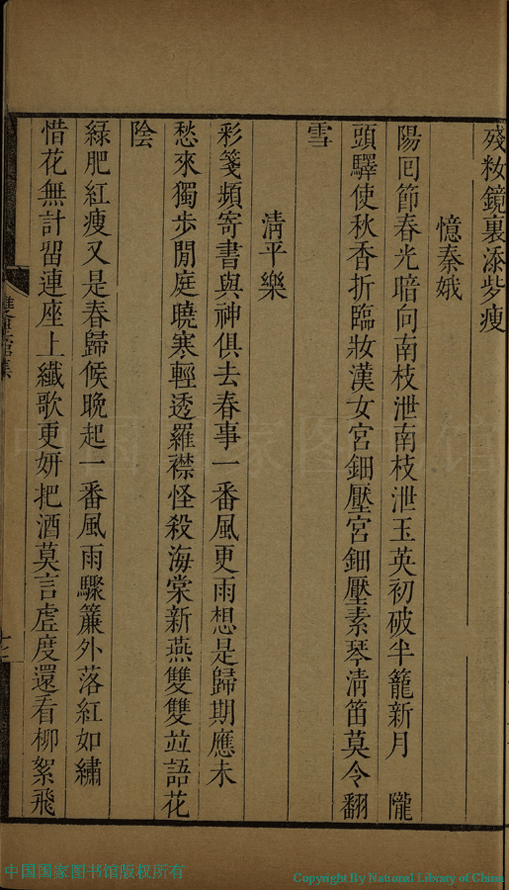 殘妝鏡裏添些瘦
憶秦娥
陽回節春光暗向南枝泄南枝泄玉英初破半籠新月　隴
頭驛使秋香折臨妝漢女宮鈿壓宮鈿壓素琴淸笛莫令翻
雪
淸平樂
彩箋頻寄書與神俱去春事一番風更雨想是歸期應未
愁來獨步閒庭曉寒輕透羅襟怪殺海棠新燕雙雙竝語花
陰
綠肥紅瘦又是春歸候晚起一番風雨驟簾外落紅如繡
惜花無計留連座上纖歌更妍把酒莫言虛度還看柳絮飛
中国国家图书馆版权所有
Copyright By National Library of China